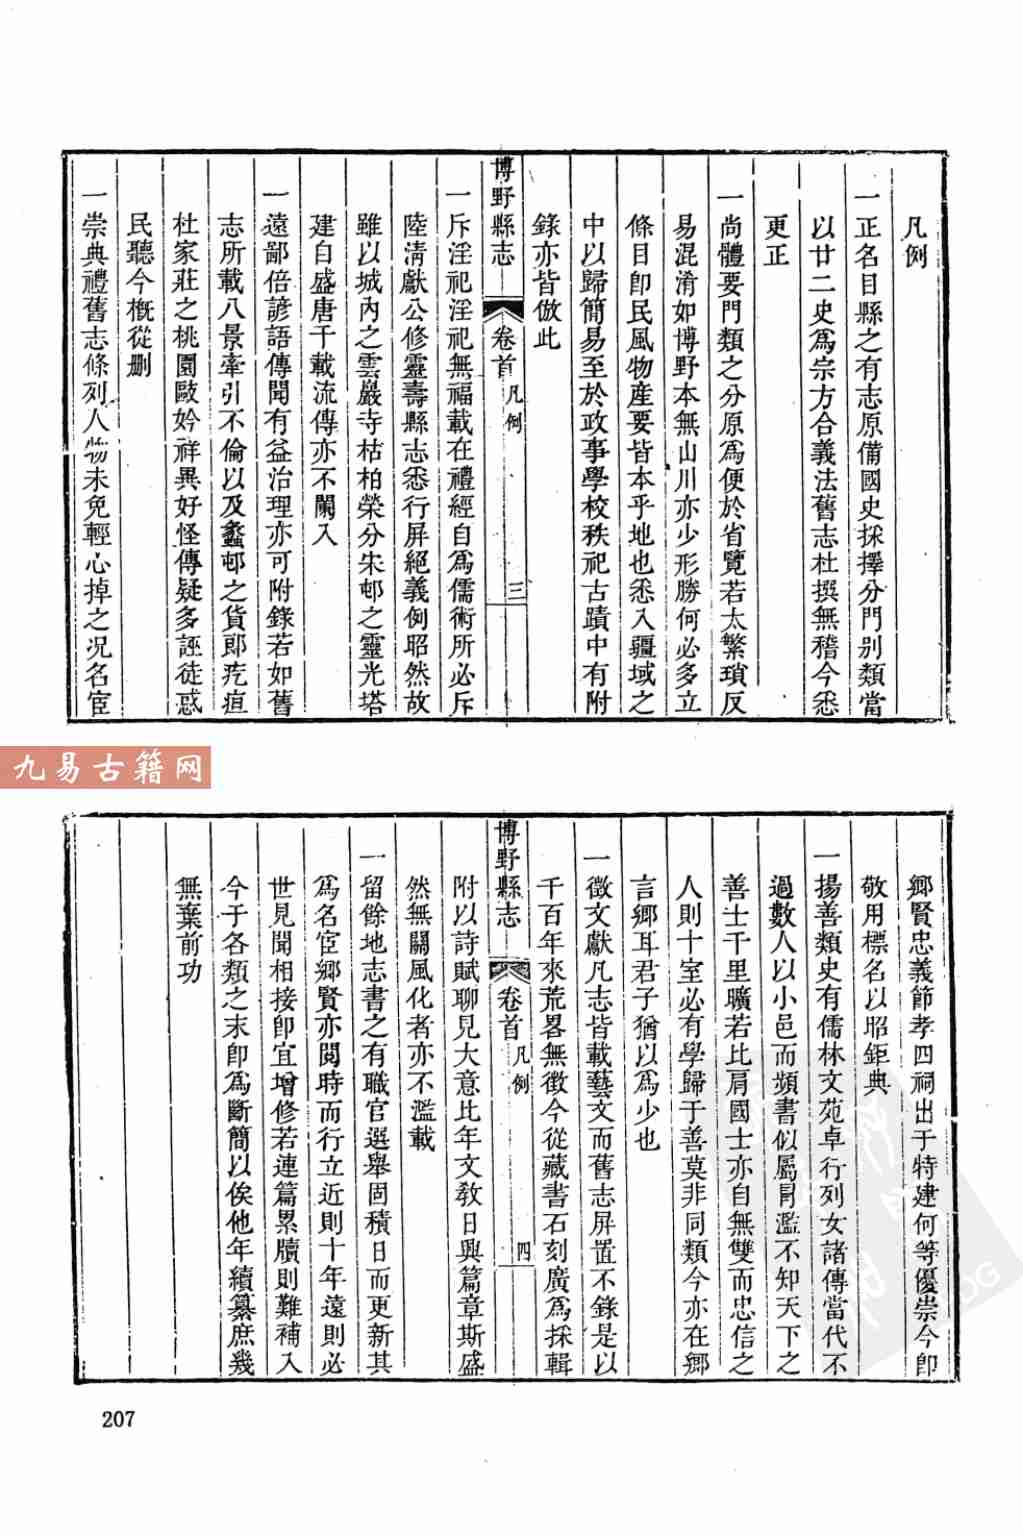 凡例
一正名目縣之有志原備國史採擇分門别類當
以廿二史爲宗方合義法舊志杜撰無稽今悉
更正
一尚體要門類之分原爲便於省覽若太繁瑣反
易混淆如博野本無山川亦少形勝何必多立
條目卽民風物產要皆本乎地也悉入疆域之
中以歸簡易至於政事學校秩祀古蹟中有附
錄亦皆倣此
博野縣志 卷首 凡例 三
一斥淫祀淫祀無福載在禮經自爲儒術所必斥
陸清獻公修靈壽縣志悉行屏絕義例昭然故
雖以城內之雲巖寺枯柏榮分朱邨之靈光塔
建自盛唐千載流傳亦不闌入
一遠鄙倍諺語傳聞有益治理亦可附錄若如舊
志所載八景牽引不倫以及蠡邨之貨郎疙疸
杜家莊之桃園毆妗祥異好怪傳疑多誣徒惑
民聽今槪從删
一崇典禮舊志條列人物未免輕心掉之况名宦
九易古籍网
鄉賢忠義節孝四祠出于特建何等優崇今卽
敬用標名以昭鉅典
一揚善類史有儒林文苑卓行列女諸傳當代不
過數人以小邑而頻書似屬冐濫不知天下之
善士千里曠若比肩國士亦自無雙而忠信之
人則十室必有學歸于善莫非同類今亦在鄉
言鄉耳君子猶以爲少也
一徵文獻凡志皆載藝文而舊志屏置不錄是以
千百年來荒畧無徵今從藏書石刻廣爲採輯
博野縣志 卷首 凡例 四
附以詩賦聊見大意比年文敎日興篇章斯盛
然無關風化者亦不濫載
一留餘地志書之有職官選舉固積日而更新其
爲名宦鄉賢亦閱時而行立近則十年遠則必
世見聞相接卽宜增修若連篇累牘則難補入
今于各類之末卽爲斷簡以俟他年續纂庶幾
無棄前功
207